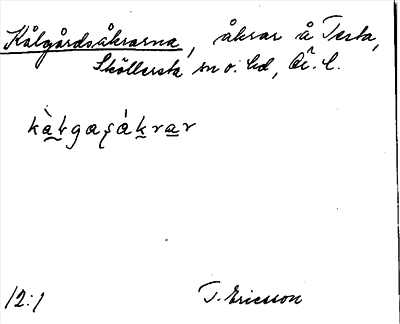 Kålgårdsåkrarna, åkrar å Testa,
Sköllersta sn o. hd, Ör. l.
kàḷgaṣákrar
12:1 T. Ericsson